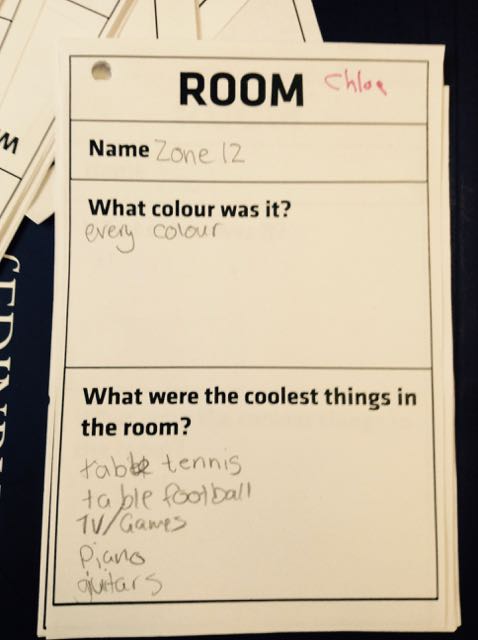 ROOM Chloe
Name Zone 12
What colour was it?
every colour
What were the coolest things in
the room?
table tennis
table football
TV/Games
Piano
guitars